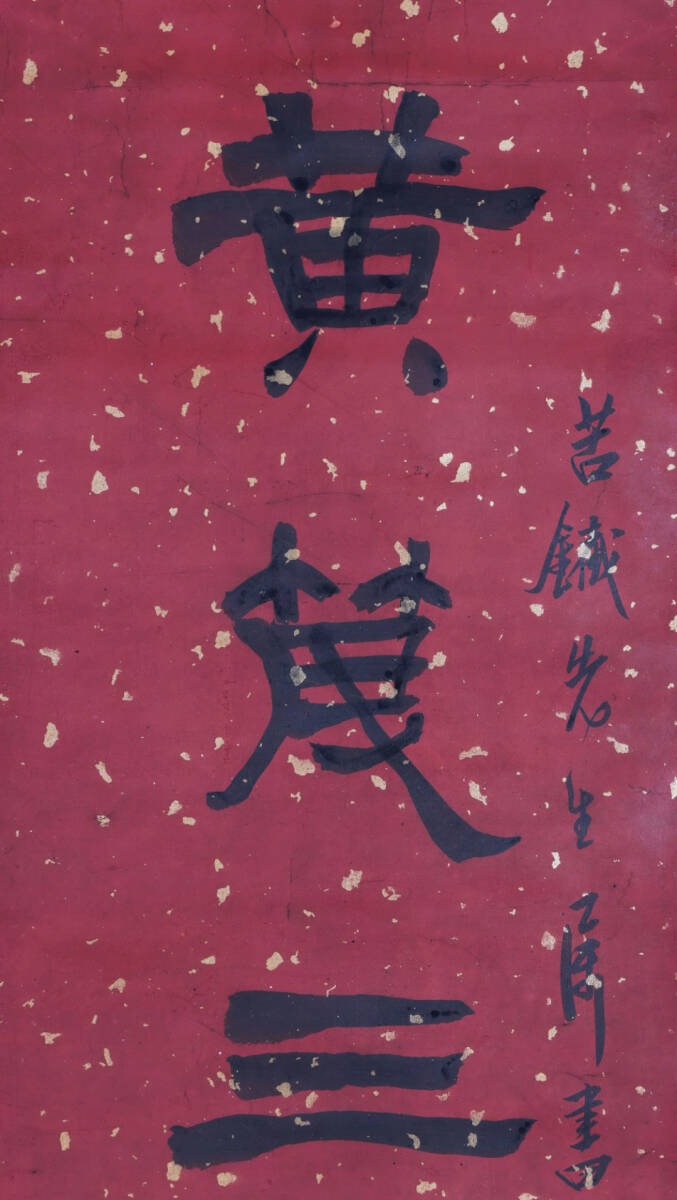 苦鐵先生屬書
黄三